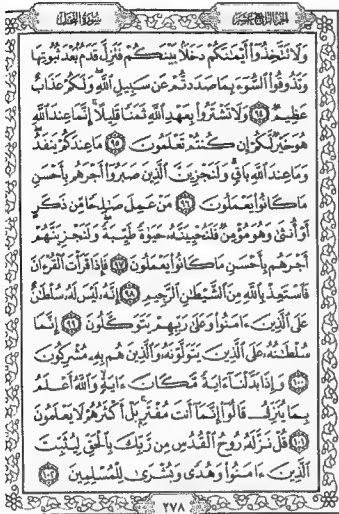 سورة النحل
الجزء الرابع عشر
وَلَا تَتَّخِذُوٓا۟ أَيْمَـٰنَكُمْ دَخَلًۢا بَيْنَكُمْ فَتَزِلَّ قَدَمٌۢ بَعْدَ ثُبُوتِهَا
وَتَذُوقُوا۟ ٱلسُّوٓءَ بِمَا صَدَدتُّمْ عَن سَبِيلِ ٱللَّهِ وَلَكُمْ عَذَابٌ
عَظِيمٌ ٩٤ وَلَا تَشْتَرُوا۟ بِعَهْدِ ٱللَّهِ ثَمَنًا قَلِيلًا ۚ إِنَّمَا عِندَ ٱللَّهِ
هُوَ خَيْرٌ لَّكُمْ إِن كُنتُمْ تَعْلَمُونَ ٩٥ مَا عِندَكُمْ يَنفَدُ ۖ
وَمَا عِندَ ٱللَّهِ بَاقٍ ۗ وَلَنَجْزِيَنَّ ٱلَّذِينَ صَبَرُوٓا۟ أَجْرَهُم بِأَحْسَنِ
مَا كَانُوا۟ يَعْمَلُونَ ٩٦ مَنْ عَمِلَ صَـٰلِحًا مِّن ذَكَرٍ
أَوْ أُنثَىٰ وَهُوَ مُؤْمِنٌ فَلَنُحْيِيَنَّهُۥ حَيَوٰةً طَيِّبَةً ۖ وَلَنَجْزِيَنَّهُمْ
أَجْرَهُم بِأَحْسَنِ مَا كَانُوا۟ يَعْمَلُونَ ٩٧ فَإِذَا قَرَأْتَ ٱلْقُرْءَانَ
فَٱسْتَعِذْ بِٱللَّهِ مِنَ ٱلشَّيْطَـٰنِ ٱلرَّجِيمِ ٩٨ إِنَّهُۥ لَيْسَ لَهُۥ سُلْطَـٰنٌ
عَلَى ٱلَّذِينَ ءَامَنُوا۟ وَعَلَىٰ رَبِّهِمْ يَتَوَكَّلُونَ ٩٩ إِنَّمَا
سُلْطَـٰنُهُۥ عَلَى ٱلَّذِينَ يَتَوَلَّوْنَهُۥ وَٱلَّذِينَ هُم بِهِۦ مُشْرِكُونَ
١٠٠ وَإِذَا بَدَّلْنَآ ءَايَةً مَّكَانَ ءَايَةٍ ۙ وَٱللَّهُ أَعْلَمُ
بِمَا يُنَزِّلُ قَالُوٓا۟ إِنَّمَآ أَنتَ مُفْتَرٍۭ ۚ بَلْ أَكْثَرُهُمْ لَا يَعْلَمُونَ
١٠١ قُلْ نَزَّلَهُۥ رُوحُ ٱلْقُدُسِ مِن رَّبِّكَ بِٱلْحَقِّ لِيُثَبِّتَ
ٱلَّذِينَ ءَامَنُوا۟ وَهُدًى وَبُشْرَىٰ لِلْمُسْلِمِينَ ١٠٢
٢٧٨